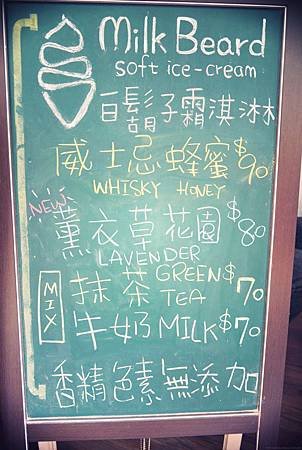 Milk Beard
soft ice-cream
白鬍子霜淇淋
威士忌蜂蜜 $90
WHISKY HONEY
NEW
薰衣草花園 $80
LAVENDER
MIX
抹茶 GREEN TEA $70
牛奶 MILK $70
香精色素無添加